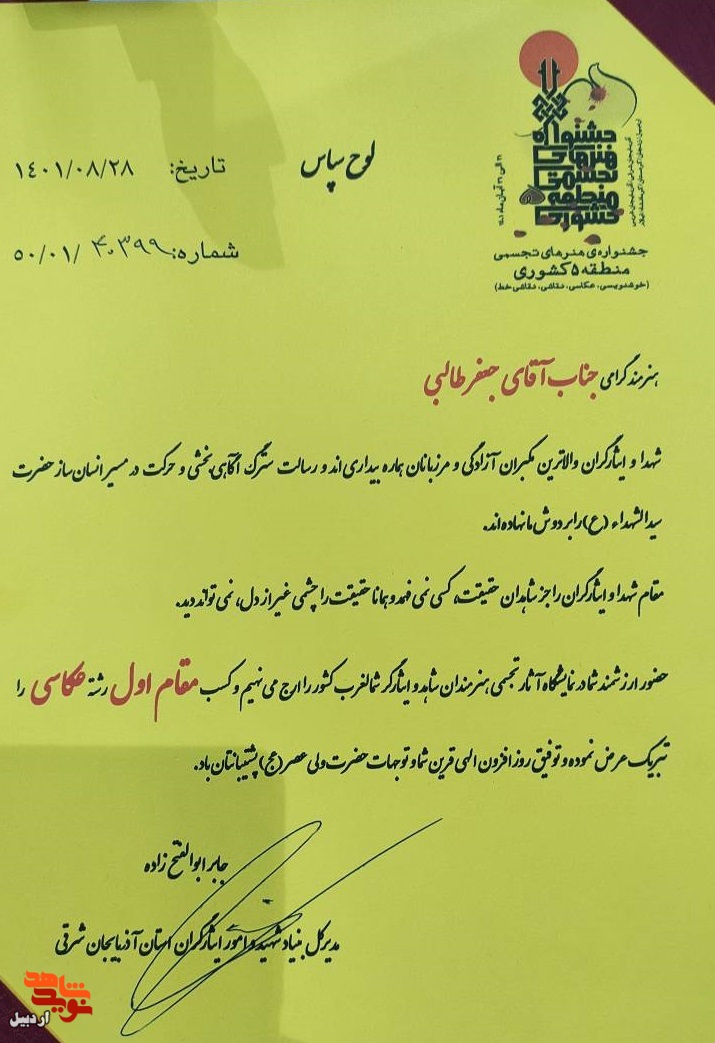 جشنواره
هنرهای
تجسمی
منطقه ۵
کشوری
جشنواره‌ی هنرهای تجسمی
منطقه ۵ کشوری
(خوشنویسی، عکاسی، نقاشی، نقاشی خط)
لوح سپاس
تاریخ: ۱۴۰۱/۰۸/۲۸
شماره: ۵۰/۰۱/۴۰۳۹۹
هنرمند گرامی جناب آقای جعفر طالبی
شهدا و ایثارگران والاترین مکبران آزادگی و مرزبانان هماره بیداری اند و رسالت سترگ آگاهی بخشی و حرکت در مسیر انسان ساز حضرت
سیدالشهداء (ع) را بر دوش ما نهاده اند.
مقام شهدا و ایثارگران را جز شاهدان حقیقت، کسی نمی فهمد و همانا حقیقت را چشمی غیر از دل، نمی تواند دید.
حضور ارزشمند شما در نمایشگاه آثار تجسمی هنرمندان شاهد و ایثارگر شمالغرب کشور را ارج می نهیم و کسب مقام اول رشته عکاسی را
تبریک عرض نموده و توفیق روز افزون الهی قرین شما و توجهات حضرت ولی عصر (عج) پشتیبانتان باد.
جابر ابوالفتح زاده
مدیرکل بنیاد شهید و امور ایثارگران استان آذربایجان شرقی
نوید شاهد
اردبیل